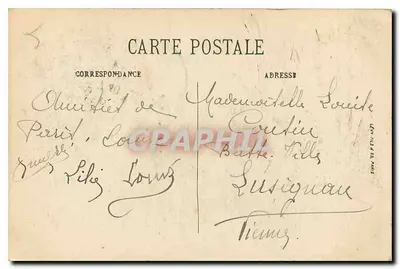 CARTE POSTALE
CORRESPONDANCE
ADRESSE
Amitiés de
Paris. Louis
Lilie Louis
Mademoiselle Louise
Coutin
Basse Ville
Lusignan
Vienne
CARTHAPHILIA